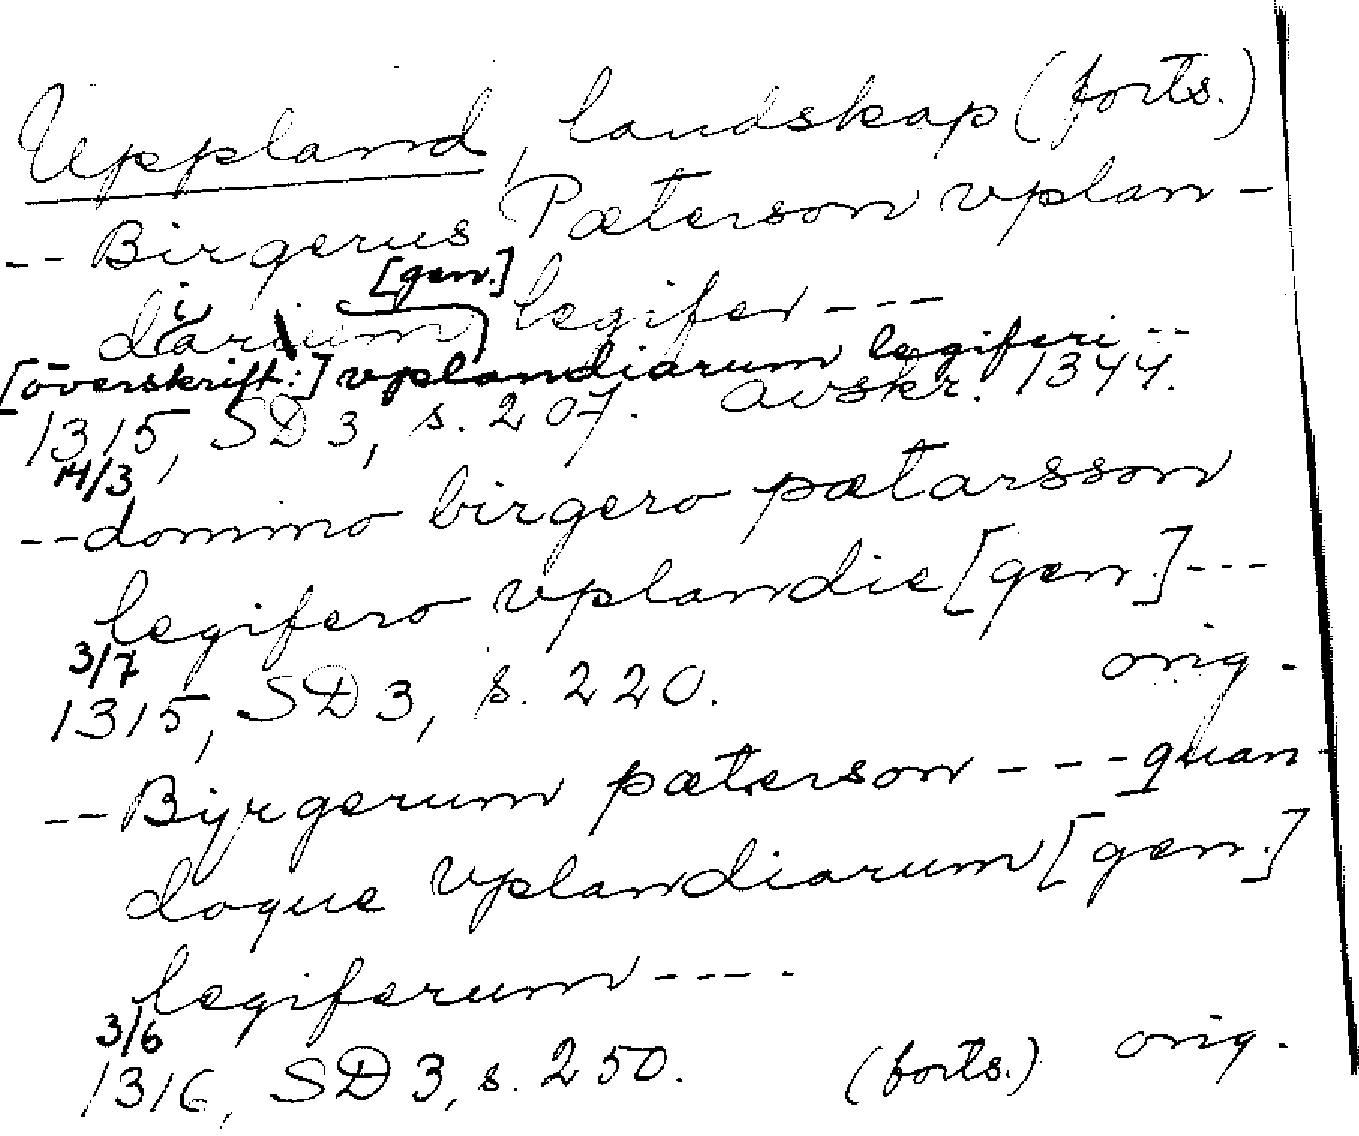 Uppland, landskap (forts.)
-- Birgerus Pæterson vplan-
diarium [gen.] legifer ---
[överskrift:] vplandiarum legiferi --
1315, SD 3, s. 207. Avskr. 1344.
14/3
-- domino birgero pætarsson
legifero vplandie [gen.] ---
3/7 orig.
1315, SD 3, s. 220.
-- Byrgerum pæterson --- quan
doque vplandiarum [gen.]
legiferum ----
3/6
1316, SD 3, s. 250. (forts.) orig.